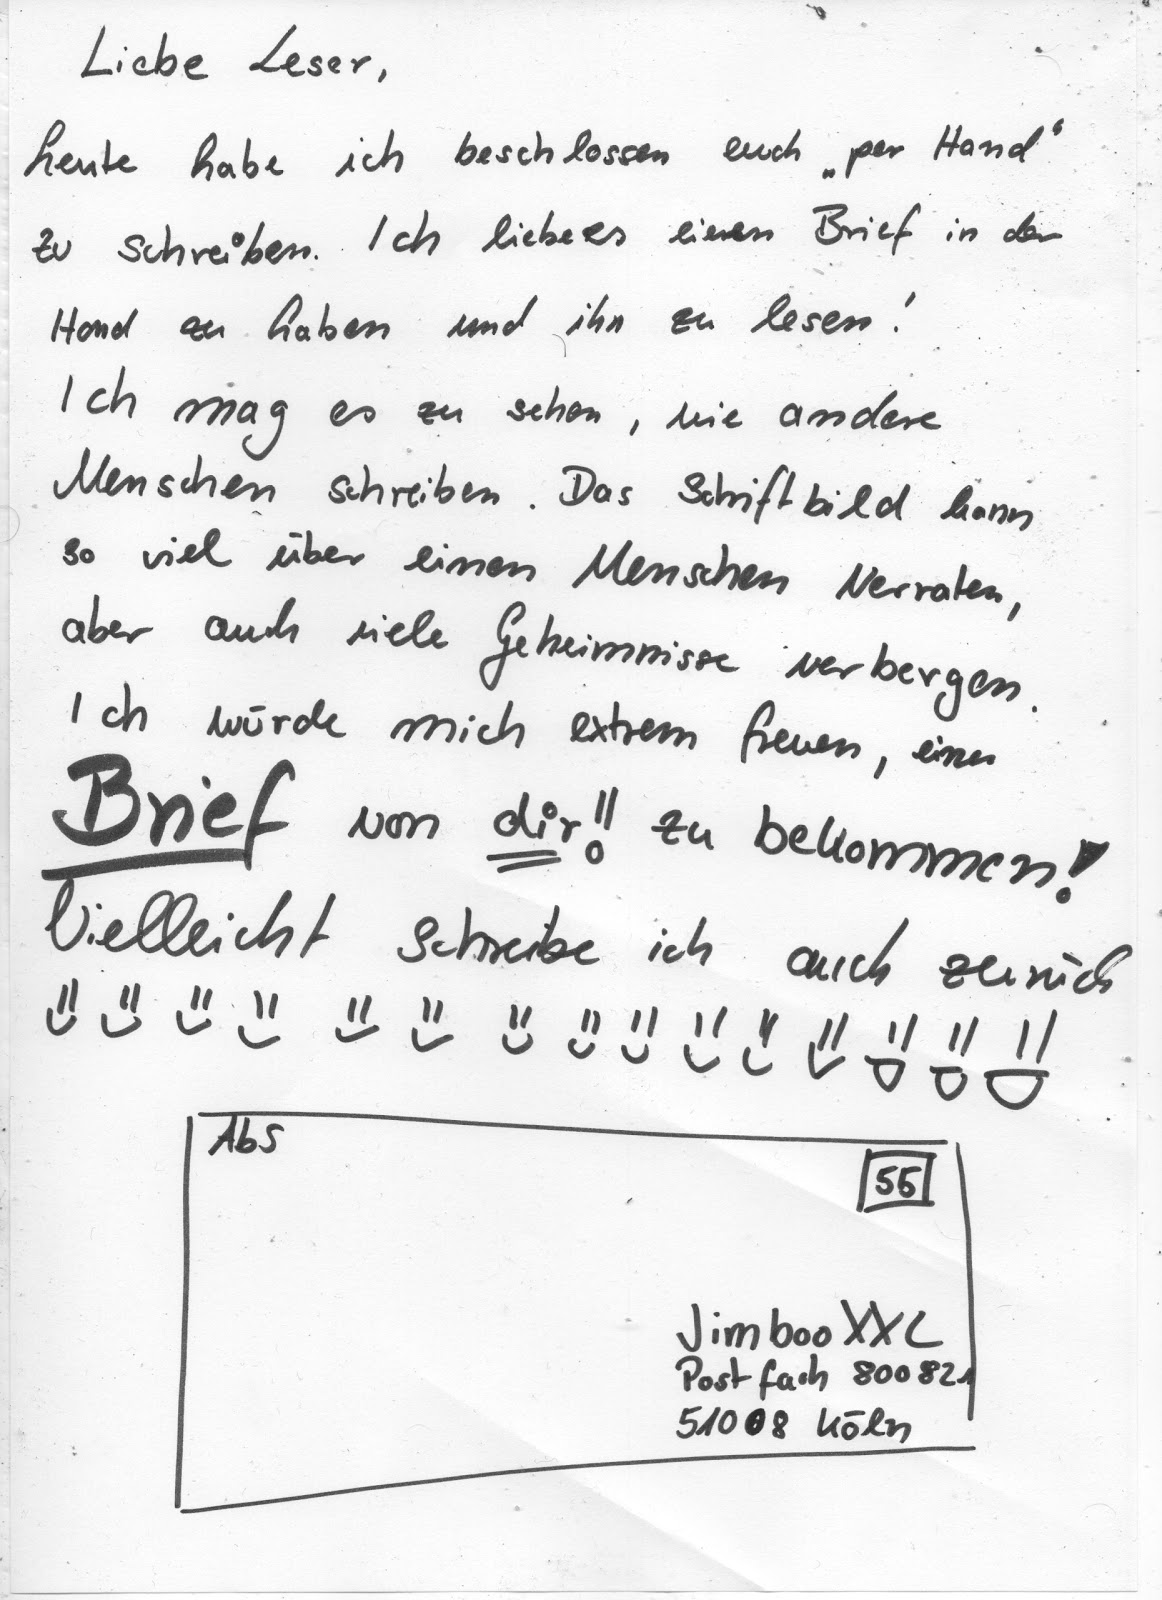 Liebe Leser,
heute habe ich beschlossen euch „per Hand“
zu schreiben. Ich liebe es einen Brief in der
Hand zu haben und ihn zu lesen!
Ich mag es zu sehen, wie andere
Menschen schreiben. Das Schriftbild kann
so viel über einen Menschen verraten,
aber auch viele Geheimnisse verbergen.
Ich würde mich extrem freuen, einen
Brief von dir!! zu bekommen!
Vielleicht schreibe ich auch zurück
Abs
55
Jimboo XXL
Postfach 800821
51008 Köln